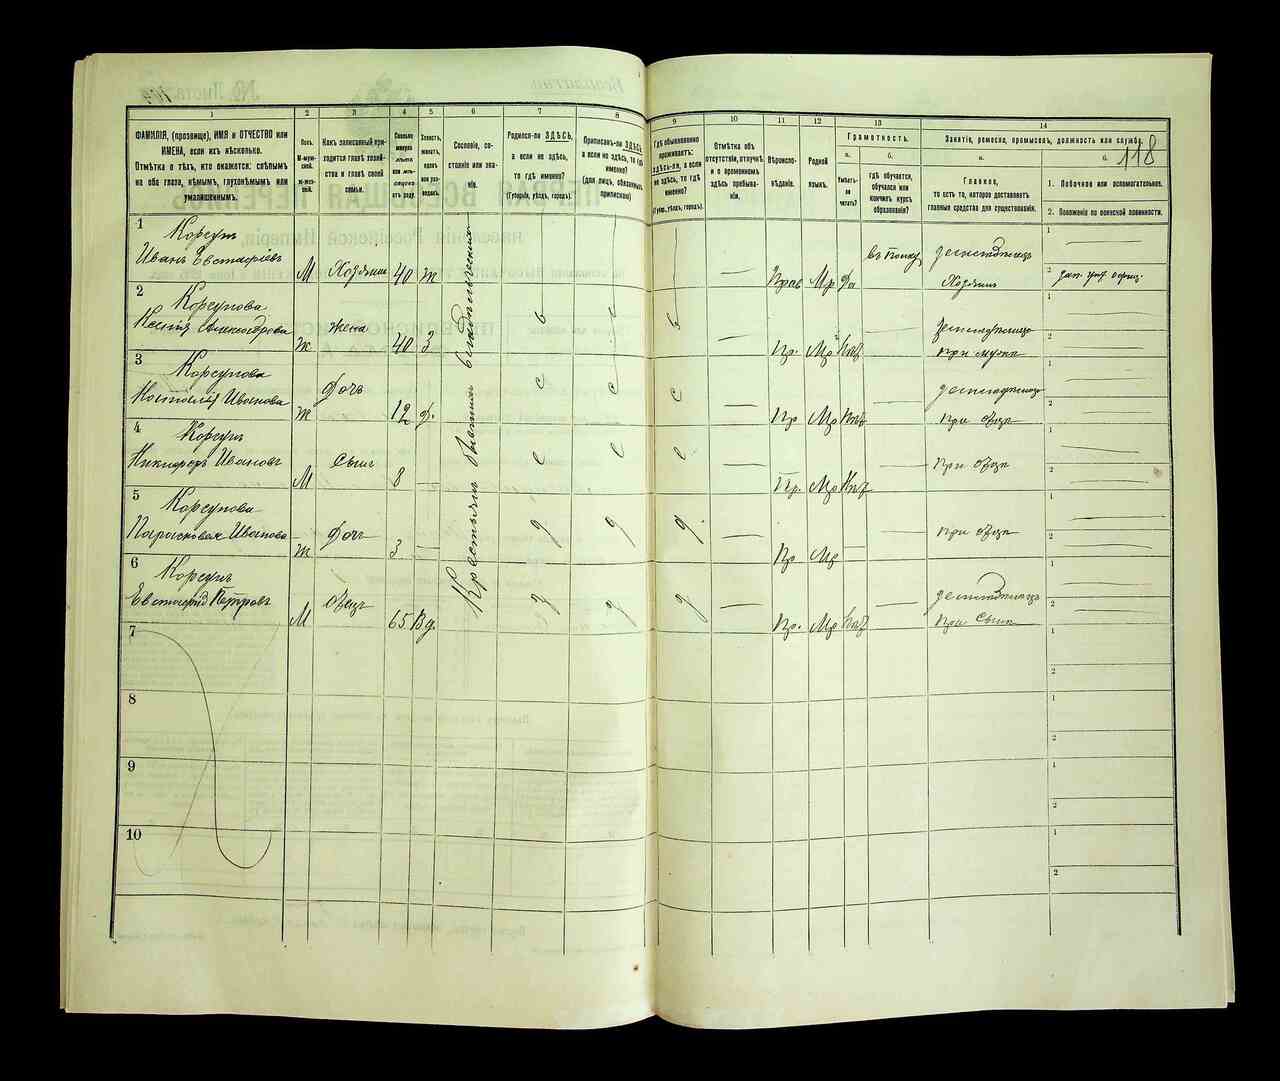 118
1
2
3
4
5
6
7
8
9
10
11
12
13
14
ФАМИЛІЯ, (прозвище), ИМЯ и ОТЧЕСТВО или
ИМЕНА, если ихъ нѣсколько.
Отмѣтка о тѣхъ, кто окажется: слѣпымъ
на оба глаза, нѣмымъ, глухонѣмымъ или
умалишеннымъ.
Полъ.
М-муж-
ской.
Ж-жен-
скій.
Какъ записанный при-
ходится главѣ хозяй-
ства и главѣ своей
семьи.
Сколько
минуло
лѣтъ
или мѣ-
сяцевъ
отъ роду.
Холостъ,
женатъ,
вдовъ
или раз-
веденъ.
Сословіе, со-
стояніе или зва-
ніе.
Родился-ли ЗДѢСЬ,
а если не здѣсь,
то гдѣ именно?
(Губернія, уѣздъ, городъ).
Приписанъ-ли ЗДѢСЬ,
а если не здѣсь, то гдѣ
именно?
(для лицъ, обязанныхъ
припискою)
Гдѣ обыкновенно
проживаетъ:
здѣсь-ли, а если
не здѣсь, то гдѣ
именно?
(Губер., уѣздъ, городъ).
Отмѣтка объ
отсутствіи, отлучкѣ
и о временномъ
здѣсь пребыва-
ніи.
Вѣроиспо-
вѣданіе.
Родной
языкъ.
Грамотность.
а.
б.
Умѣетъ-
ли
читать?
Гдѣ обучается,
обучался или
кончилъ курсъ
образованія?
Занятіе, ремесло, промыселъ, должность или служба.
а.
б.
Главное,
то есть то, которое доставляетъ
главныя средства для существованія.
1. Побочное или вспомогательное.
2. Положеніе по воинской повинности.
1
Корсунъ
Иванъ Евстафіевъ
М
Хозяинъ
40
ж
Крестьян бывший владѣльческий
Прав
Мр
да
въ полку
земледѣлецъ
Хозяинъ
1
2
2
Корсунова
Ксенія
ж
жена
40
З
Пр.
Мр
земледѣлецъ
при мужѣ
1
2
3
Корсунова
Наталія Иванова
ж
дочь
12
д.
Пр
Мр
земледѣлецъ
при отцѣ
1
2
4
Корсунъ
Никифоръ Ивановъ
М
сынъ
8
Пр.
Мр
при отцѣ
1
2
5
Корсунова
Парасковія Иванова
ж
дочь
3
Пр
Мр
при отцѣ
1
2
6
Корсунъ
Евстафій Петровъ
М
отецъ
65
Вд.
Пр.
Мр
земледѣлецъ
при сынѣ
1
2
7
1
2
8
1
2
9
1
2
10
1
2